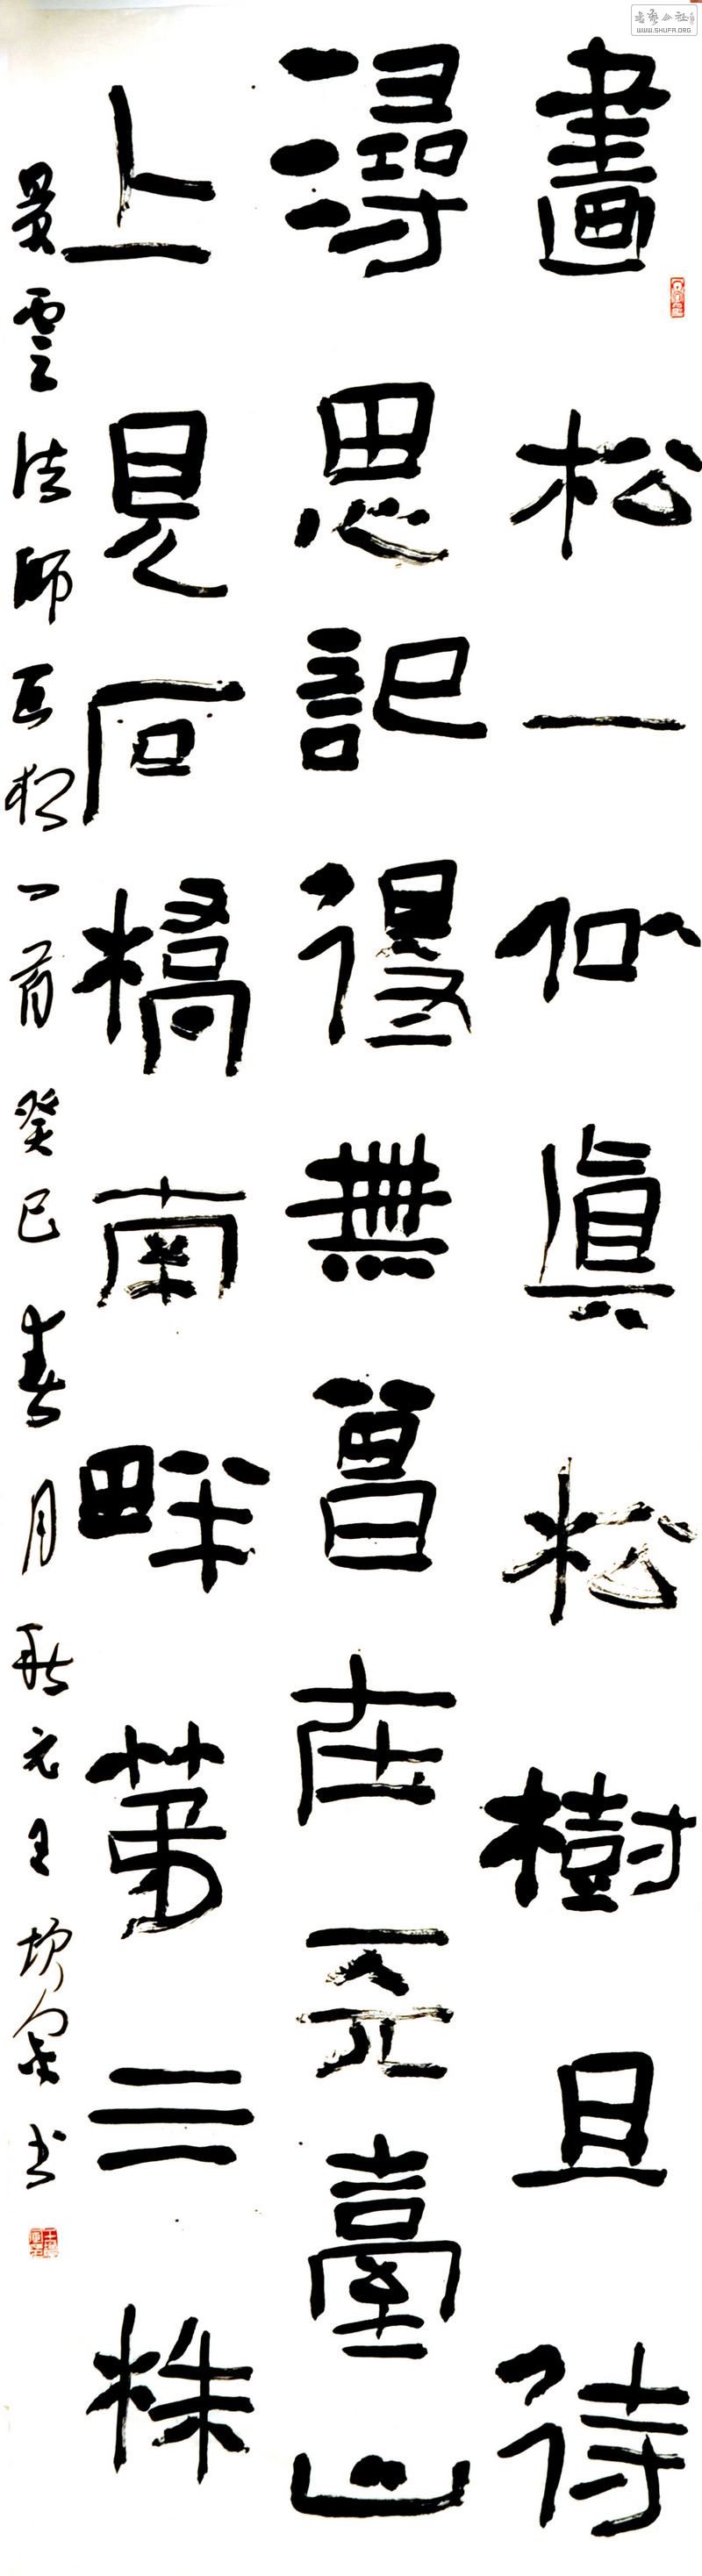 書藝公社
WWW.SHUFA.ORG
畫松一似真松樹且待
潯思記得無曾在天臺山
上見石橋南畔第三株
景雲法師画松一首癸巳春月元王书